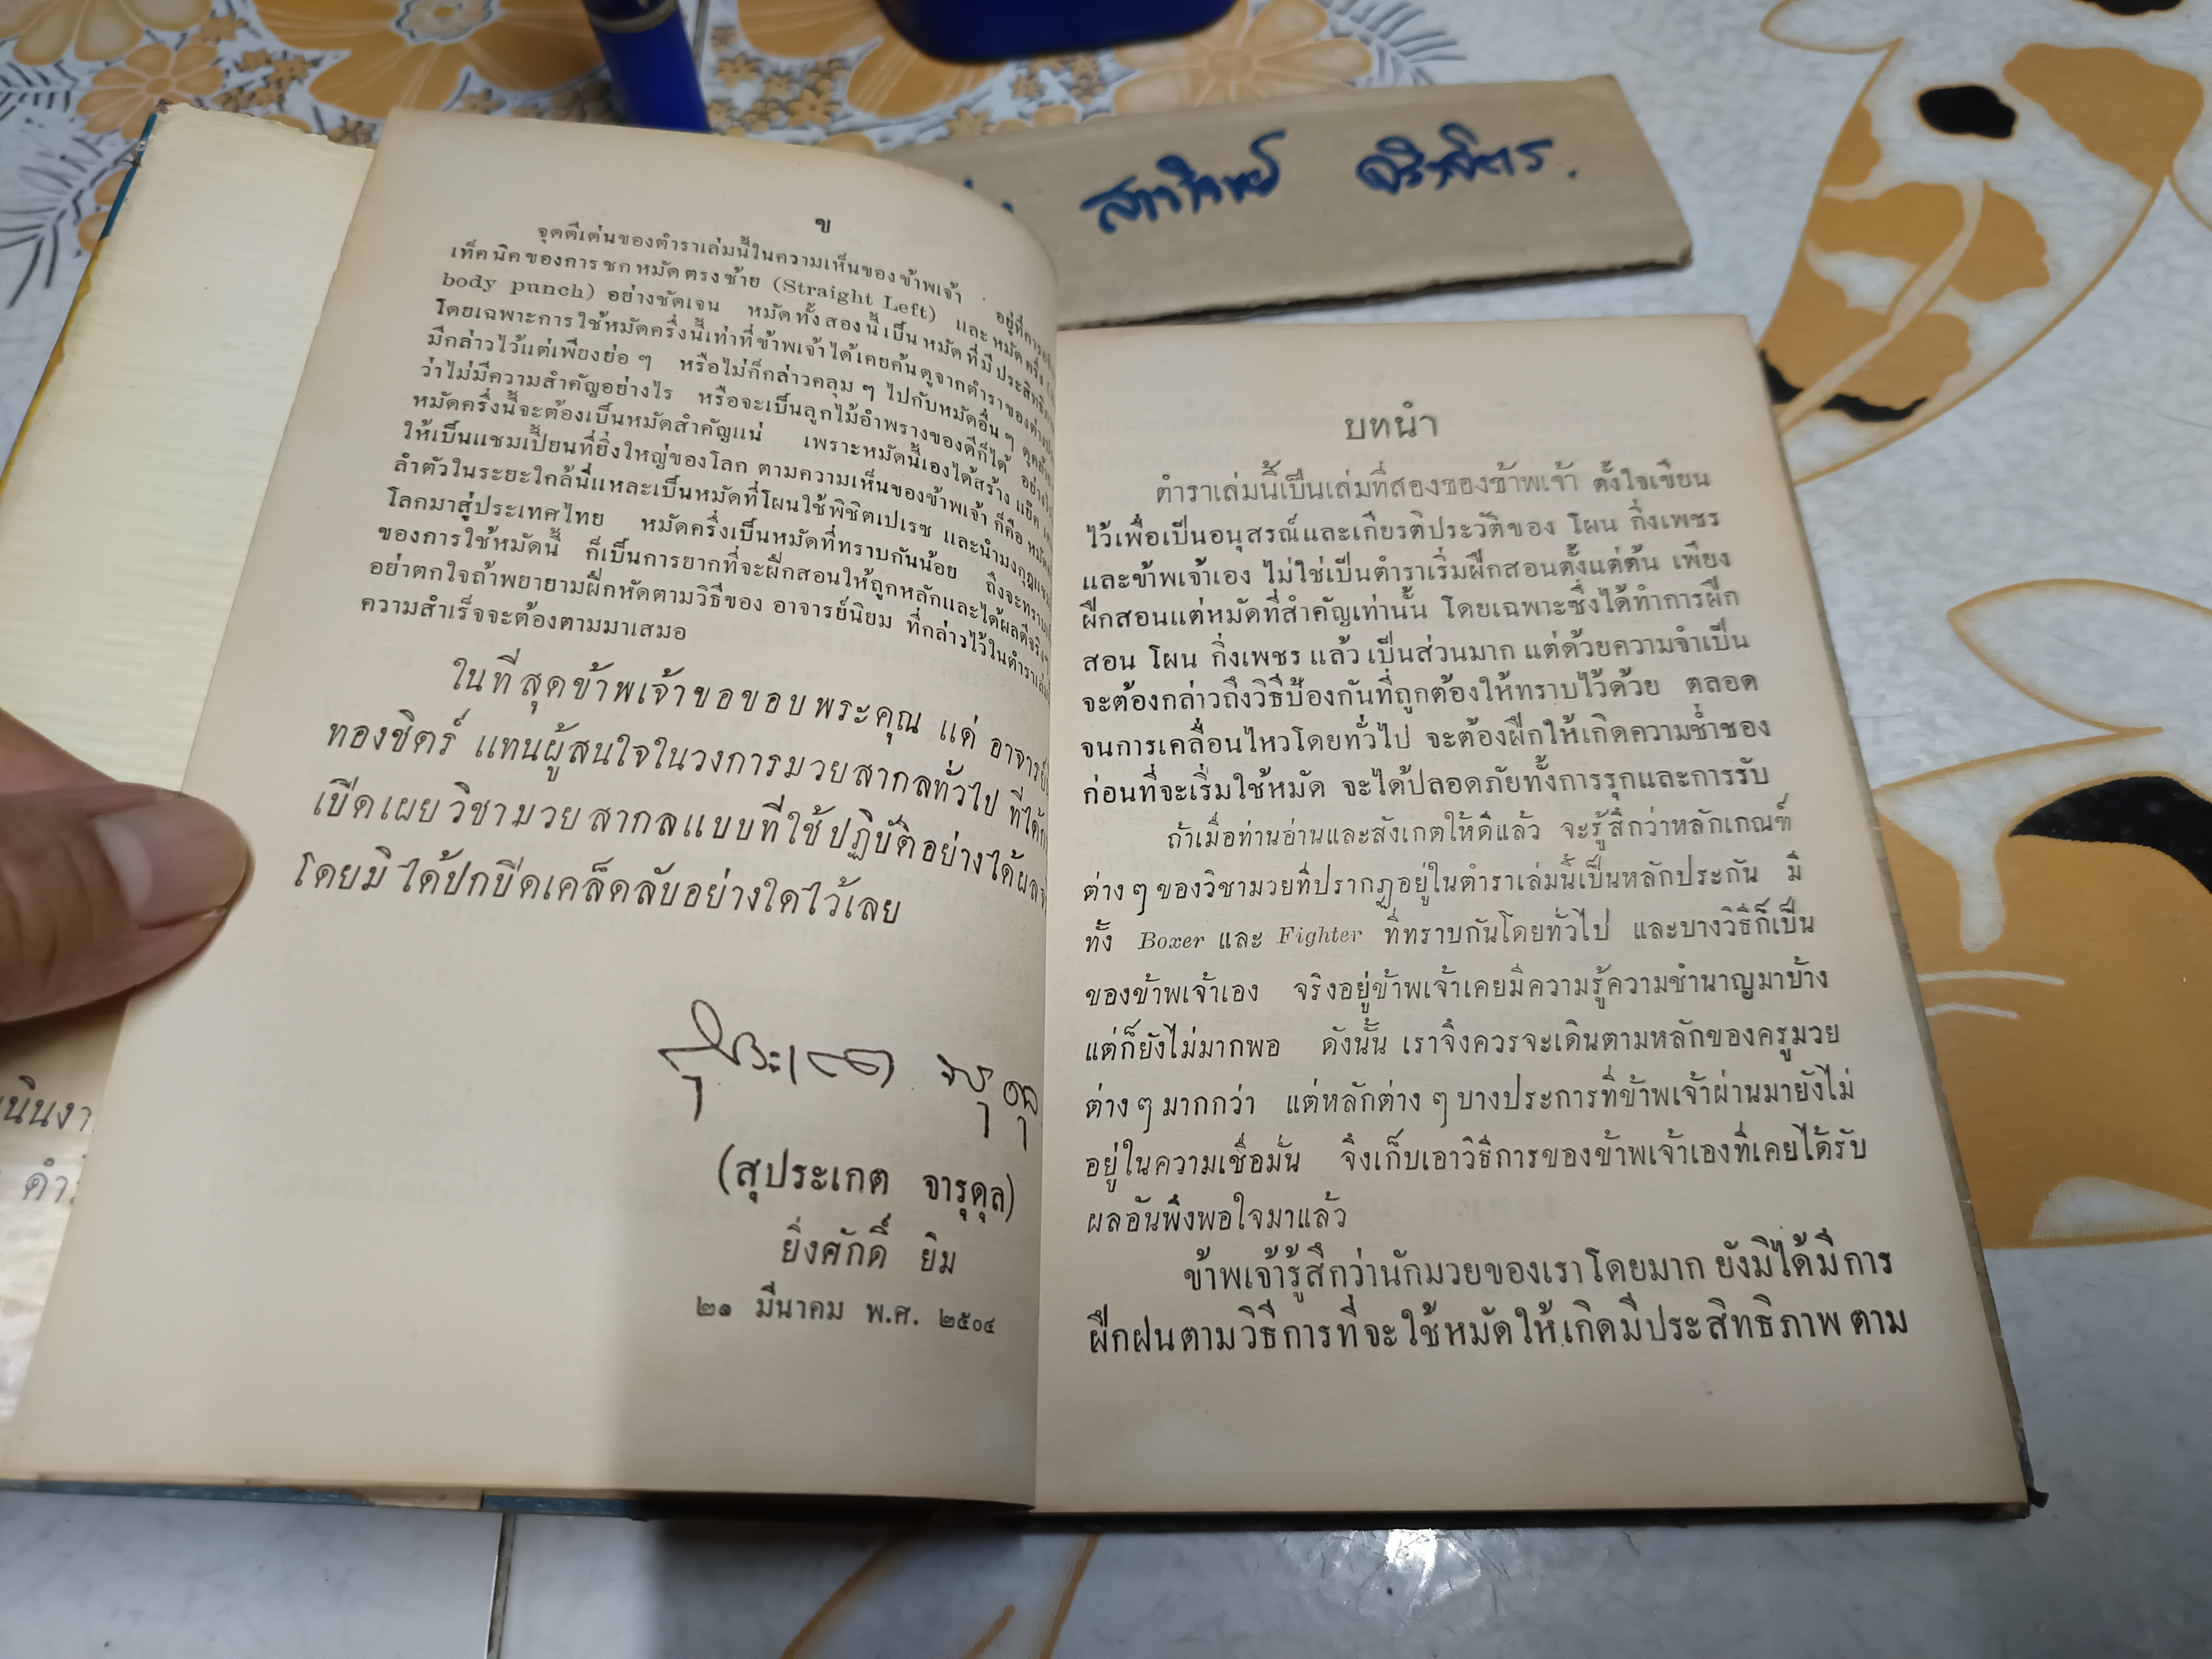 ข
จุดดีเด่นของตำราเล่มนี้ในความเห็นของข้าพเจ้า อยู่ที่การ
เท็คนิคของการชกหมัดตรงซ้าย (Straight Left) และหมัดครึ่ง
body punch) อย่างชัดเจน หมัดทั้งสองนี้เป็นหมัดที่มีประสิทธิภาพ
โดยเฉพาะการใช้หมัดครึ่งนี้เท่าที่ข้าพเจ้าได้เคยค้นดูจากตำราของต่างประ
มีกล่าวไว้แต่เพียงย่อ ๆ หรือไม่ก็กล่าวคลุม ๆ ไปกับหมัดอื่น ๆ ดุจ
ว่าไม่มีความสำคัญอย่างไร หรือจะเป็นลูกไม้อำพรางของดีก็ได้ อย่าง
หมัดครึ่งนี้จะต้องเป็นหมัดสำคัญแน่ เพราะหมัดนี้เองได้สร้าง แย๊ค
ให้เป็นแชมเปี้ยนที่ยิ่งใหญ่ของโลก ตามความเห็นของข้าพเจ้า ก็คือ
ลำตัวในระยะใกล้นี่แหละเป็นหมัดที่โผนใช้พิชิตเปเรซ และนำมงกุฎแชม
โลกมาสู่ประเทศไทย หมัดครึ่งเป็นหมัดที่ทราบกันน้อย ถึงจะทราบ
ของการใช้หมัดนี้ ก็เป็นการยากที่จะฝึกสอนให้ถูกหลักและได้ผลดีจริงๆ
อย่าตกใจถ้าพยายามฝึกหัดตามวิธีของ อาจารย์นิยม ที่กล่าวไว้ในตำราเล่ม
ความสำเร็จจะต้องตามมาเสมอ
ในที่สุดข้าพเจ้าขอขอบพระคุณ แด่ อาจารย์
ทองชิตร์ แทนผู้สนใจในวงการมวยสากลทั่วไป ที่ได้
เปิดเผยวิชามวยสากลแบบที่ใช้ปฏิบัติอย่างได้ผล
โดยมิได้ปกปิดเคล็ดลับอย่างใดไว้เลย
(สุประเกต จารุดุล)
ยิ่งศักดิ์ ยิม
๒๑ มีนาคม พ.ศ. ๒๕๐๔
บทนำ
ตำราเล่มนี้เป็นเล่มที่สองของข้าพเจ้า ตั้งใจเขียน
ไว้เพื่อเป็นอนุสรณ์และเกียรติประวัติของ โผน กิ่งเพชร
และข้าพเจ้าเอง ไม่ใช่เป็นตำราเริ่มฝึกสอนตั้งแต่ต้น เพียง
ฝึกสอนแต่หมัดที่สำคัญเท่านั้น โดยเฉพาะซึ่งได้ทำการฝึก
สอน โผน กิ่งเพชร แล้ว เป็นส่วนมาก แต่ด้วยความจำเป็น
จะต้องกล่าวถึงวิธีป้องกันที่ถูกต้องให้ทราบไว้ด้วย ตลอด
จนการเคลื่อนไหวโดยทั่วไป จะต้องฝึกให้เกิดความช่ำชอง
ก่อนที่จะเริ่มใช้หมัด จะได้ปลอดภัยทั้งการรุกและการรับ
ถ้าเมื่อท่านอ่านและสังเกตให้ดีแล้ว จะรู้สึกว่าหลักเกณฑ์
ต่าง ๆ ของวิชามวยที่ปรากฏอยู่ในตำราเล่มนี้เป็นหลักประกัน มี
ทั้ง Boxer และ Fighter ที่ทราบกันโดยทั่วไป และบางวิธีก็เป็น
ของข้าพเจ้าเอง จริงอยู่ข้าพเจ้าเคยมีความรู้ความชำนาญมาบ้าง
แต่ก็ยังไม่มากพอ ดังนั้น เราจึงควรจะเดินตามหลักของครูมวย
ต่าง ๆ มากกว่า แต่หลักต่าง ๆ บางประการที่ข้าพเจ้าผ่านมายังไม่
อยู่ในความเชื่อมั่น จึงเก็บเอาวิธีการของข้าพเจ้าเองที่เคยได้รับ
ผลอันพึงพอใจมาแล้ว
ข้าพเจ้ารู้สึกว่านักมวยของเราโดยมาก ยังมิได้มีการ
ฝึกฝนตามวิธีการที่จะใช้หมัดให้เกิดมีประสิทธิภาพ ตาม